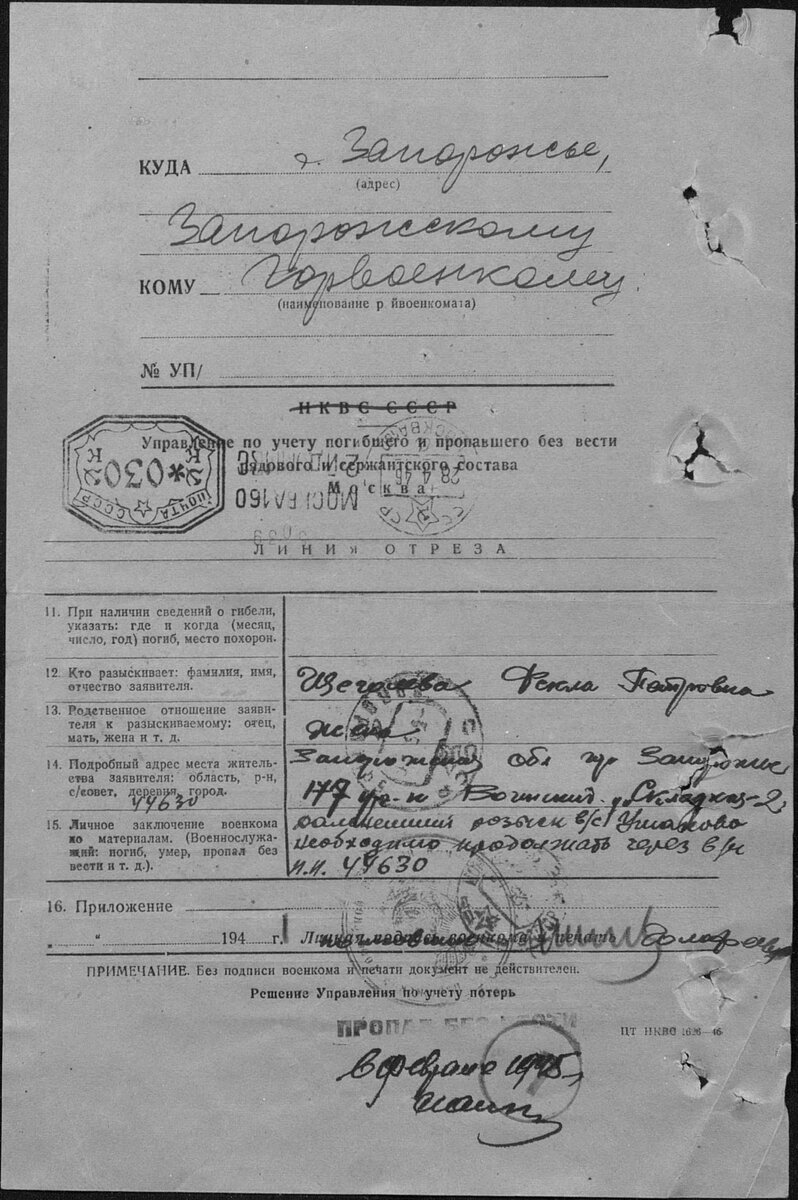 КУДА г. Запорожье,
(адрес)
Запорожскому
КОМУ Горвоенкому
(наименование р йвоенкомата)
№ УП/
НКВС СССР
Управление по учету погибшего и пропавшего без вести
рядового и сержантского состава
Москва
К 030 К
ПОЧТА СССР
МОСКВА 160
28 4 46
ЛИНИЯ ОТРЕЗА
11. При наличии сведений о гибели,
указать: где и когда (месяц,
число, год) погиб, место похорон.
12. Кто разыскивает: фамилия, имя,
отчество заявителя.
Фекла Петровна
13. Родственное отношение заяви-
теля к разыскиваемому: отец,
мать, жена и т. д.
жена
14. Подробный адрес места житель-
ства заявителя: область, р-н,
с/совет, деревня, город.
44630
Запорожская обл гор Запорожье
15. Личное заключение военкома
по материалам. (Военнослужа-
щий: погиб, умер, пропал без
вести и т. д.).
дальнейший розыск в/сл Ушакова
необходимо продолжать через в/ч
п.п. 44630
16. Приложение
„ “ 194 г. Личная подпись военкома и печать
ПРИМЕЧАНИЕ. Без подписи военкома и печати документ не действителен.
Решение Управления по учету потерь
ПРОПАЛ БЕЗ ВЕСТИ
ЦТ НКВС 1626—46
в феврале 1945 г.